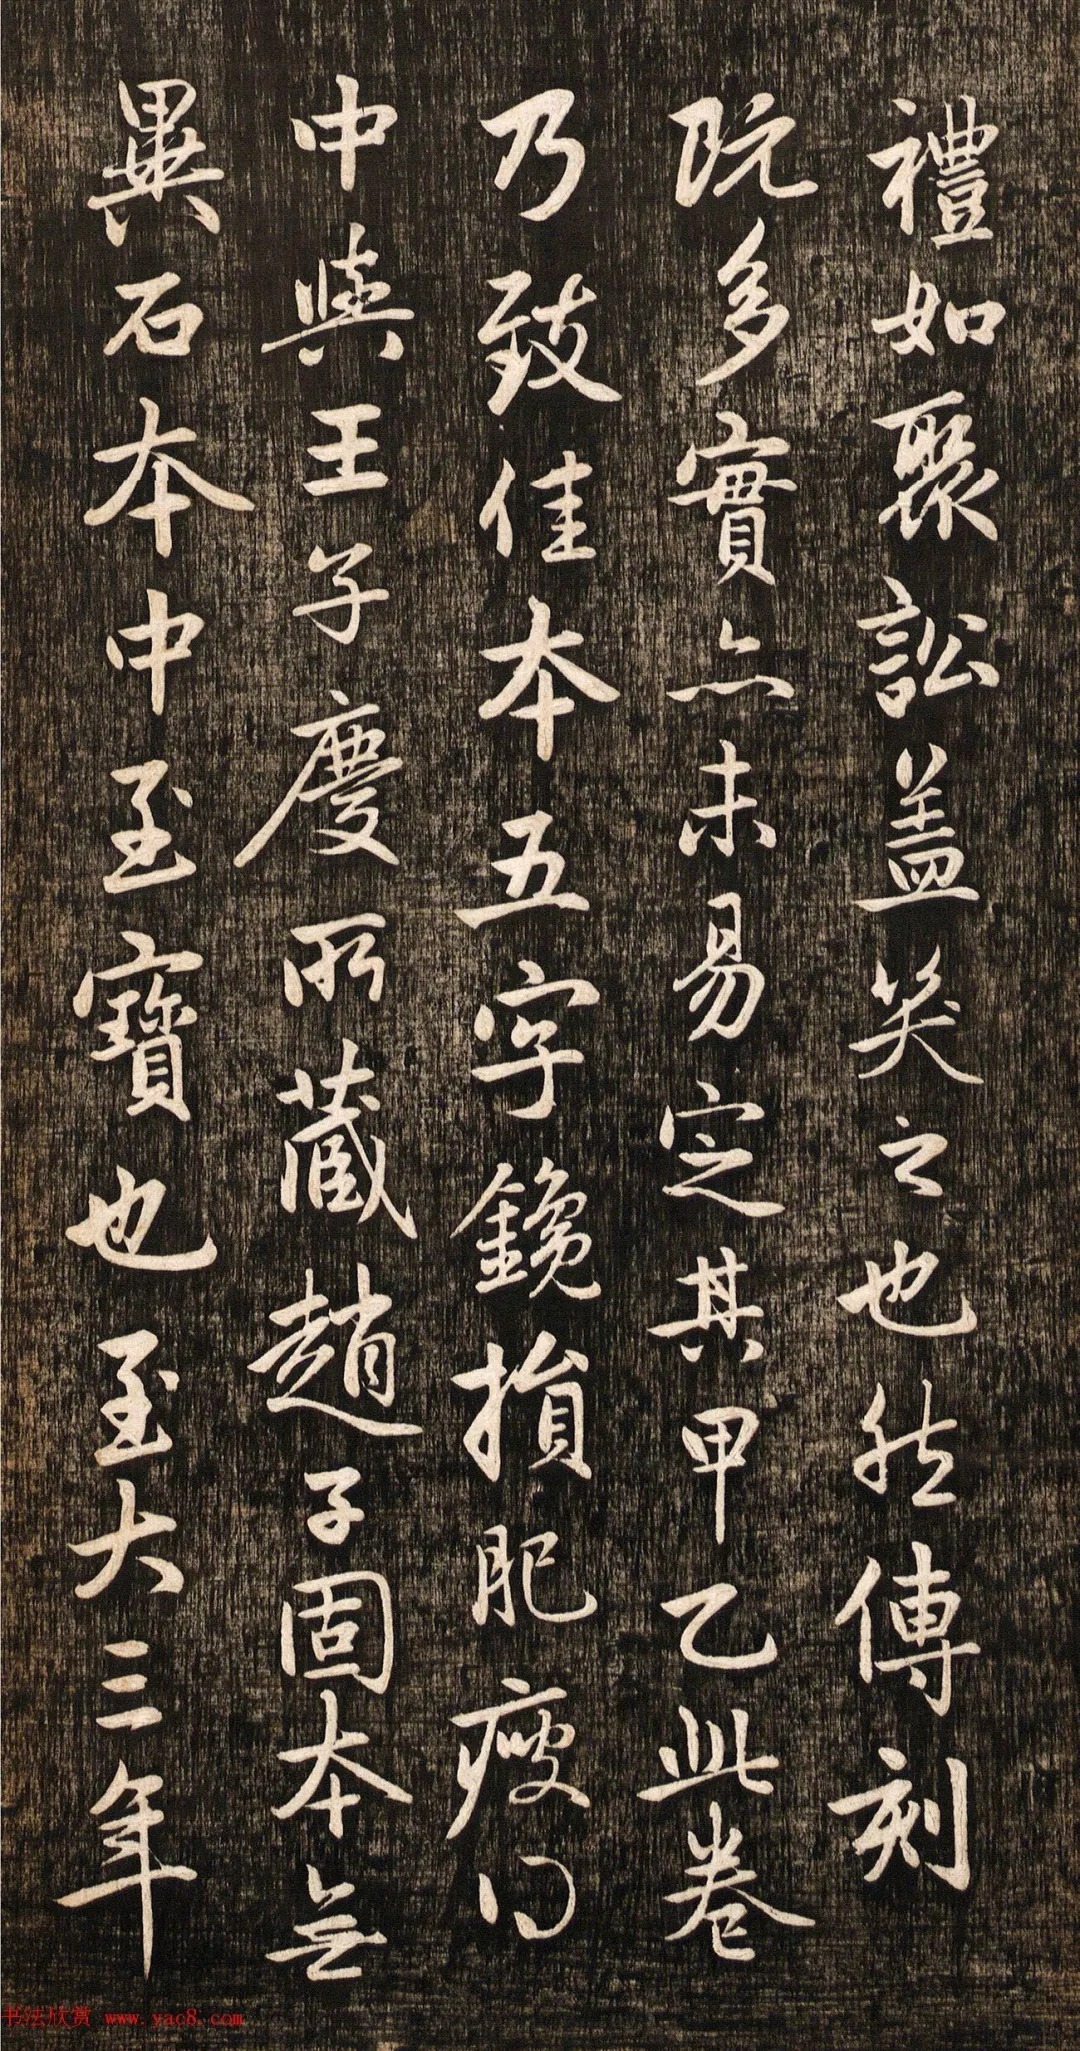 禮如聚訟盖笑之也然傳刻
既多實亦未易定其甲乙此卷
乃致佳本五字鑱損肥瘦得
中與王子慶所藏趙子固本無
異石本中至寶也至大三年
书法欣赏 www.yac8.com